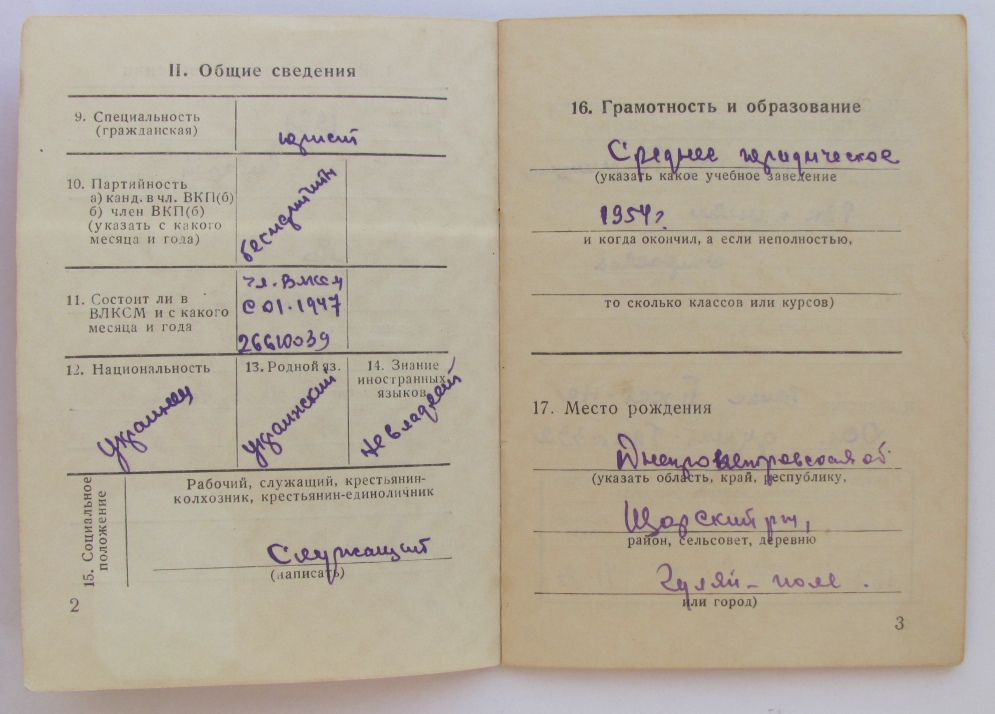 II. Общие сведения
9. Специальность
(гражданская)
юрист
10. Партийность
а) канд. в чл. ВКП(б)
б) член ВКП(б)
(указать с какого
месяца и года)
беспартийн
11. Состоит ли в
ВЛКСМ и с какого
месяца и года
чл. ВЛКСМ
с 01-1947
26610039
12. Национальность
украинец
13. Родной яз.
украинский
14. Знание
иностранных
языков
не владеет
15. Социальное
положение
Рабочий, служащий, крестьянин-
колхозник, крестьянин-единоличник
Служащий
(написать)
2
16. Грамотность и образование
Среднее юридическое
(указать какое учебное заведение
1954 г.
и когда окончил, а если неполностью,
то сколько классов или курсов)
17. Место рождения
Днепропетровская об
(указать область, край, республику,
район, сельсовет, деревню
Гуляй-поле.
или город)
3